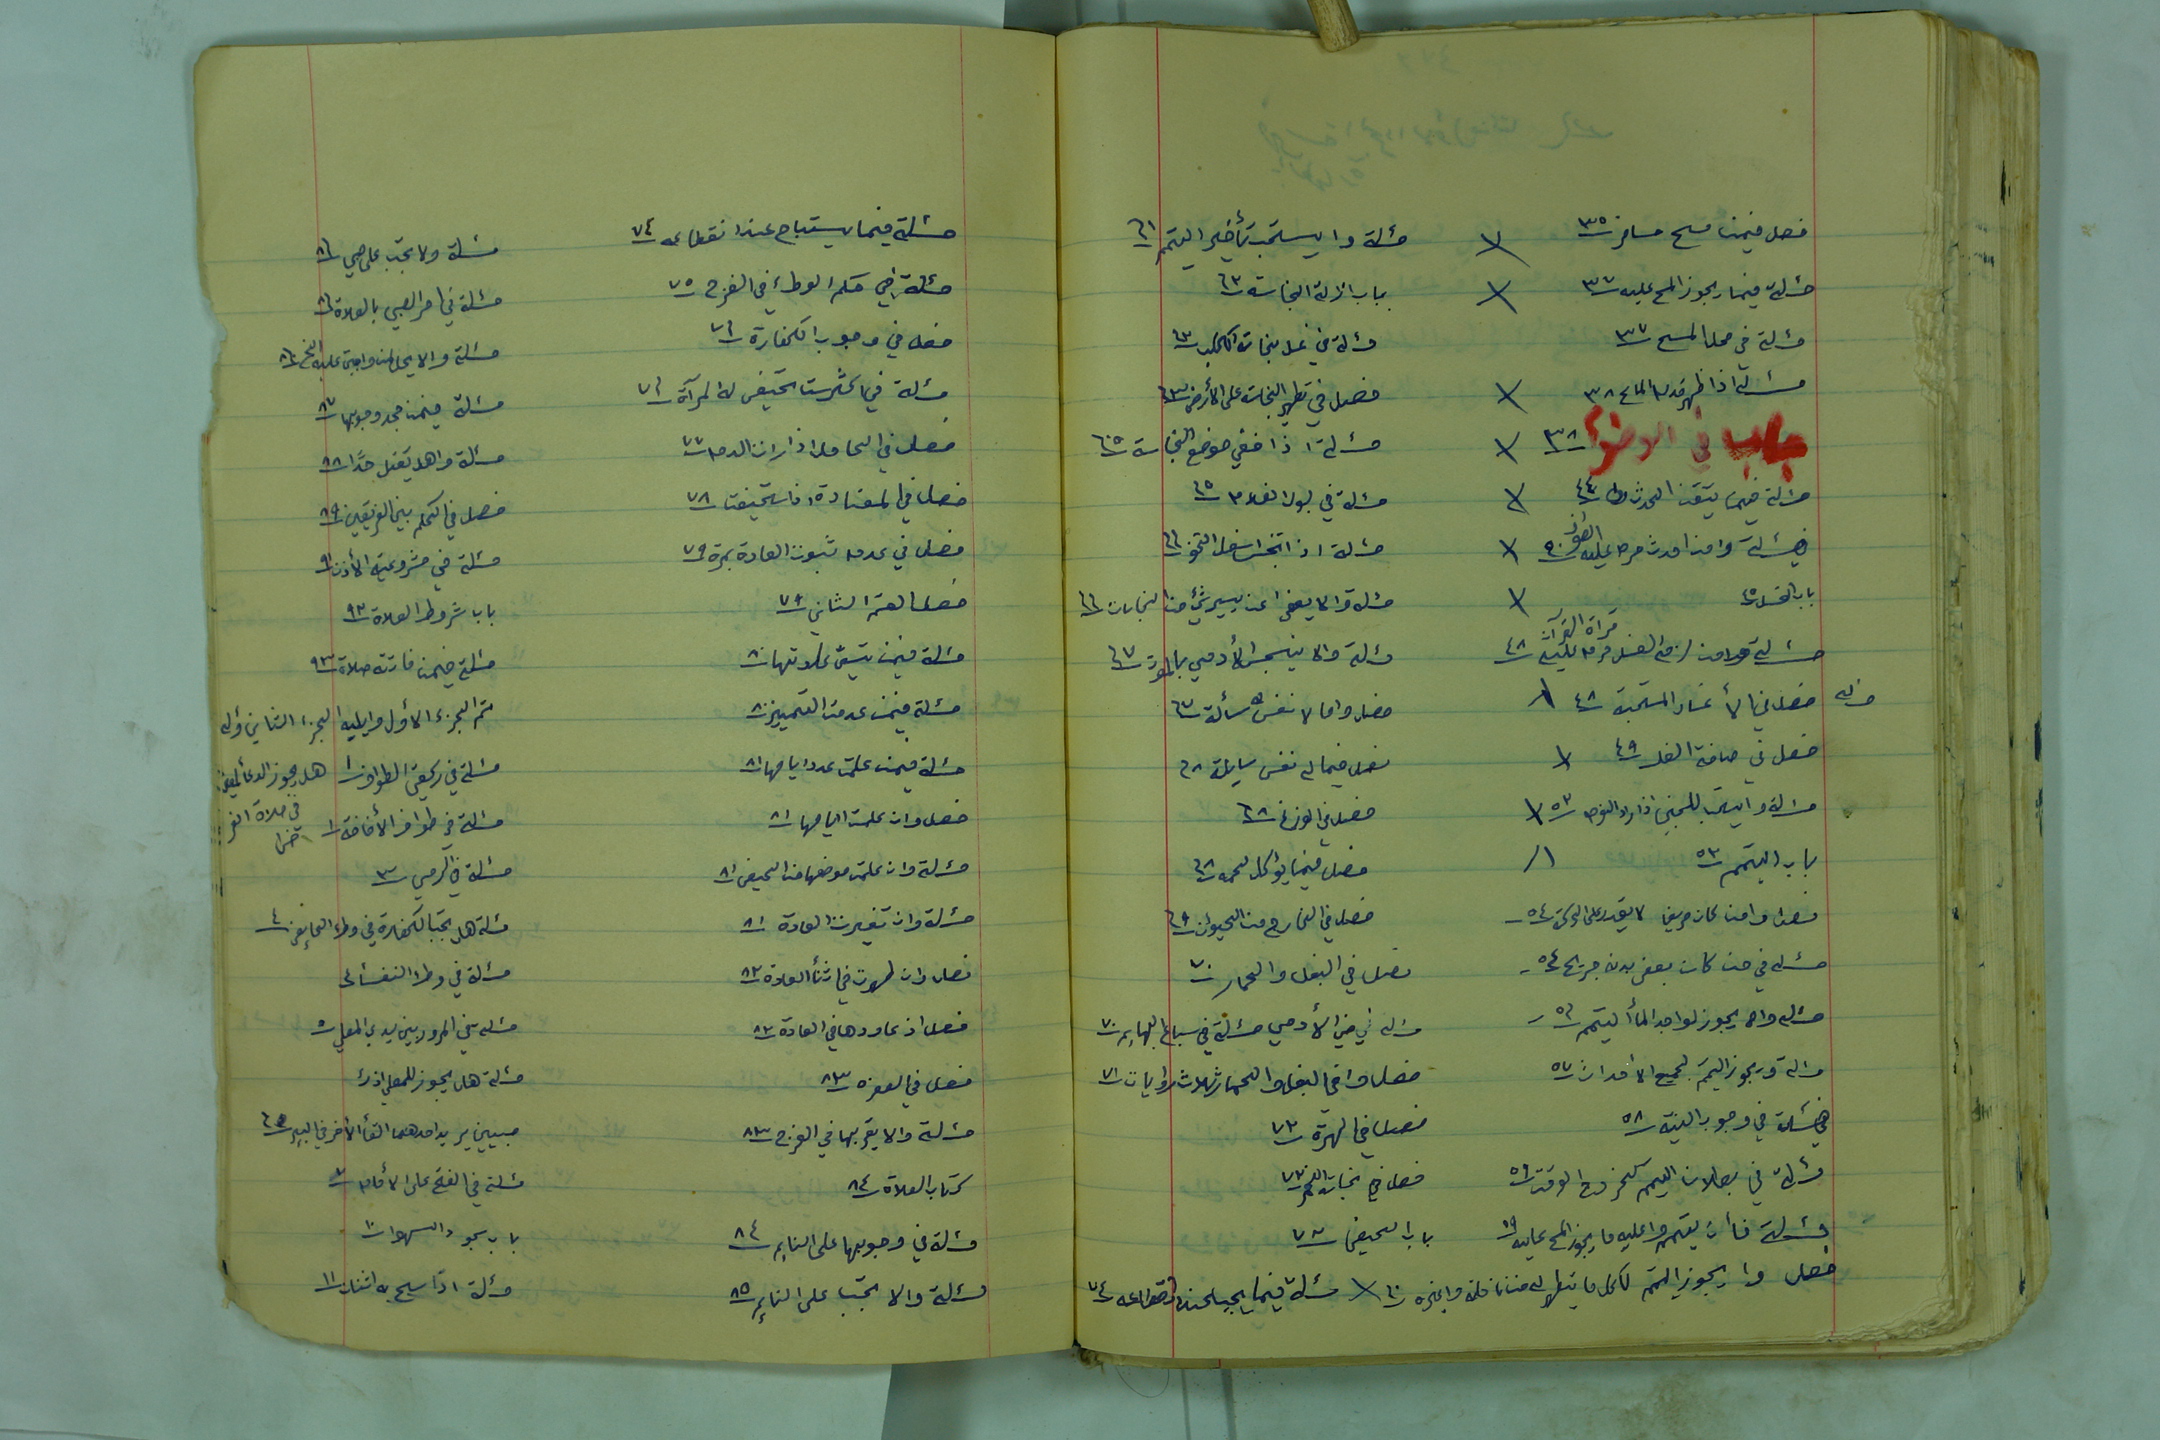 فصل فيمن مسح مسافر ٣٥
مسئلة فيما يجوز المسح عليه ٣٧
مسئلة في محل المسح ٣٧
مسئلة اذا ظهر قدم الماسح ٣٨
باب في الوضوء ٣٨
مسئلة فيمن يتيقن الحدث ٤٤
مسئلة ومن احدث حرم عليه
باب الغسل ٤٥
قرآة القرآن
مسئلة ومن لزمه الغسل حرم عليه ٤٨
مسئلة فصل في الأغسال المستحبة ٤٨
فصل في صفة الغسل ٤٩
مسئلة ويستحب للجنب اذا اراد النوم ٥٣
باب التيمم ٥٣
فصل ومن كان مريض لا يقدر على الحركة ٥٤
مسئلة في من كان بعض بدنه جريح ٥٤
مسئلة ولا يجوز لواجد الماأ التيمم ٥٦
مسئلة ويجوز التيمم لجميع الاحداث ٥٧
مسئلة في وجوب النية ٥٨
مسئلة في بطلان التيمم بخروج الوقت ٥٩
مسئلة فأن تيمم وعليه ما يجوز المسح عليه ٥٩
فصل ويجوز التيمم لكل ما يتطهر له من نافلة وغيره ٦٠
مسئلة ويستحب تأخير التيمم ٦١
باب ازالة النجاسة ٦٣
مسئلة في غسل نجاسة الكلب ٦٣
فصل في تطهير النجاسة على الأرض ٦٣
مسئلة اذا خفي موضع النجاسة ٦٥
مسئلة في بول الغلام ٦٥
مسئلة اذا تنجس اسفل الخف ٦٦
مسئلة ولا يعفى عن يسير شئ من النجاسات ٦٦
مسئلة ولا ينجس الأدمي بالموت ٦٧
فصل وما لا نفس له سألة ٦٧
فصل فيما له نفس سايلة ٦٨
فصل في الوزغ ٦٨
فصل فيما يؤكل لحمه ٦٨
فصل في الخارج من الحيوان ٦٩
فصل في البغل والحمار ٧٠
مسئلة في مني الأدمي مسئلة في سباع البهايم ٧٠
فصل وفي البغل والحمار ثلاث روايات ٧١
فصل في الهرة ٧٢
فصل في نجاسة الخمر ٧٢
باب الحيض ٧٣
مسئلة فيما يجب عند انقطاعه ٧٤
مسئلة فيما يستباح عند انقطاعه ٧٤
مسئلة في حكم الوطء في الفرج ٧٥
فصل في وجوب الكفارة ٧٦
مسئلة في كم سنة تحيض له المرأة ٧٦
فصل في الحامل اذا رات الدم ٧٧
فصل في المعتادة اذا استحيضت ٧٨
فصل في عدم ثبوت العادة بمرة ٧٩
فصل القسم الثاني ٧٩
مسئلة فيمن نسيت عادتها ٨٠
مسئلة فيمن عدمت التمييز ٨٠
مسئلة فيمن علمت عدد ايامها ٨١
فصل وان علمت ايامها ٨١
مسئلة وان علمت موضعها من الحيض ٨١
مسئلة وان تغيرت العادة ٨١
فصل وان طهرت في اثنأ العادة ٨٢
فصل اذ عاودها في العادة ٨٢
فصل في الصفرة ٨٣
مسئلة ولا يقربها في الفرج ٨٣
كتاب الصلاة ٨٤
مسئلة في وجوبها على النايم ٨٤
مسئلة ولا تجب على النايم ٨٥
مسئلة ولا تجب على صبي ٨٦
مسئلة في امر الصبي بالصلاة ٨٦
مسئلة ولا يحل لمن وجبت عليه الخ ٨٦
مسئلة فيمن جحد وجوبها ٨٧
مسئلة وهل يقتل حدًا ٨٨
فصل في الحكم بين الفريقين ٨٩
مسئلة في مشروعية الأذن ٩١
باب شروط الصلاة ٩٢
مسئلة فيمن فاتته صلاة ٩٣
تم الجزء الاول ويليه الجزء الثاني وله
مسئلة في ركعتي الطواف ١ هل يجوز الدعأ
في صلاة
مسئلة في طواف الأفاضة ١
مسئلة في الرمي ٣
مسئلة هل تجب الكفارة في وطء الحايض ٤
مسئلة في وطء النفسأ ٤
مسئلة في المرور بين يدي المصلي ٥
مسئلة هل يجوز للمصلي اذ رأ
صبيين يريد احدهما القأ الأخر في البير ٦
مسئلة في الفتح على الأمام ٧
باب سجود السهو ١٠
مسئلة اذا سبح به اثنان ١١